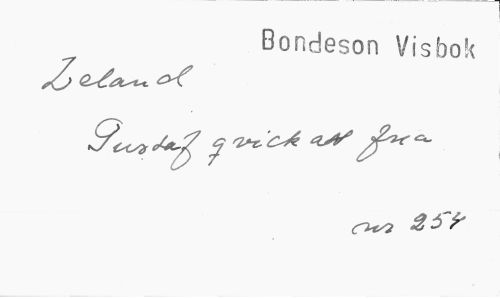 Bondeson Visbok
Leland
Gustaf qvick att fria
nr 254